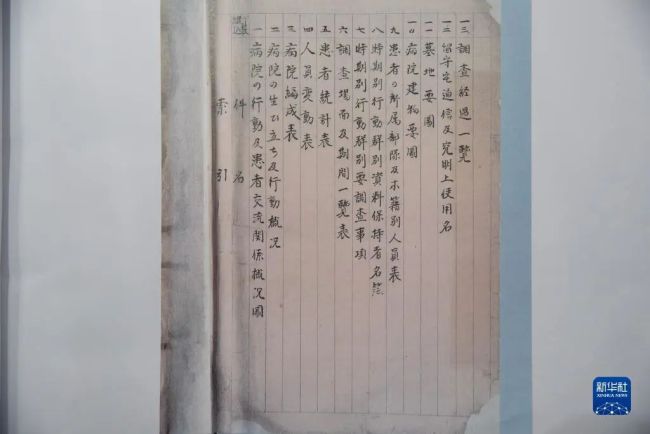 索引
件名
一 病院の行動及患者交流関係概況図
二 病院の生ひ立ち及行動概況
三 病院編成表
四 人員変動表
五 患者統計表
六 調査場面及期間一覧表
七 時期別行動群別要調査事項
八 時期別行動群別資料保持者名簿
九 患者の所属部隊及本籍別人員表
一〇 病院建物要図
一一 墓地要図
一二 留守宅通信及究明上使用名
一三 調査経過一覧
新华社
XINHUA NEWS